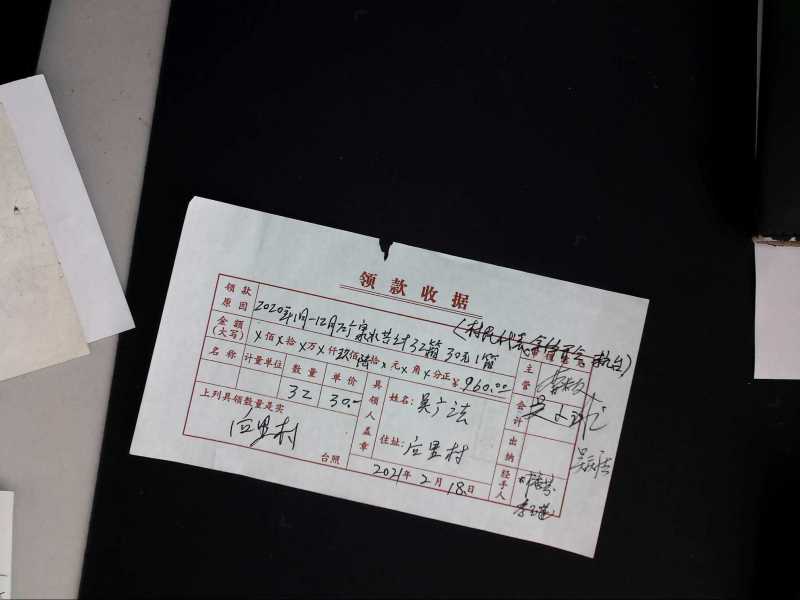 领款收据
领款原因 2020年1月—12月 泉水共计32箱 30元1箱 (村民代表
金额(大写) X佰X拾X万X仟玖佰陆拾X元X角X分正¥960.00
名称 计量单位 数量 单价
32 30.-
上列具领数量是实
应星村
台照
具领人盖章
姓名: 吴广法
住址: 应星村
2021年2月18日
主管
会计
出纳
经手人